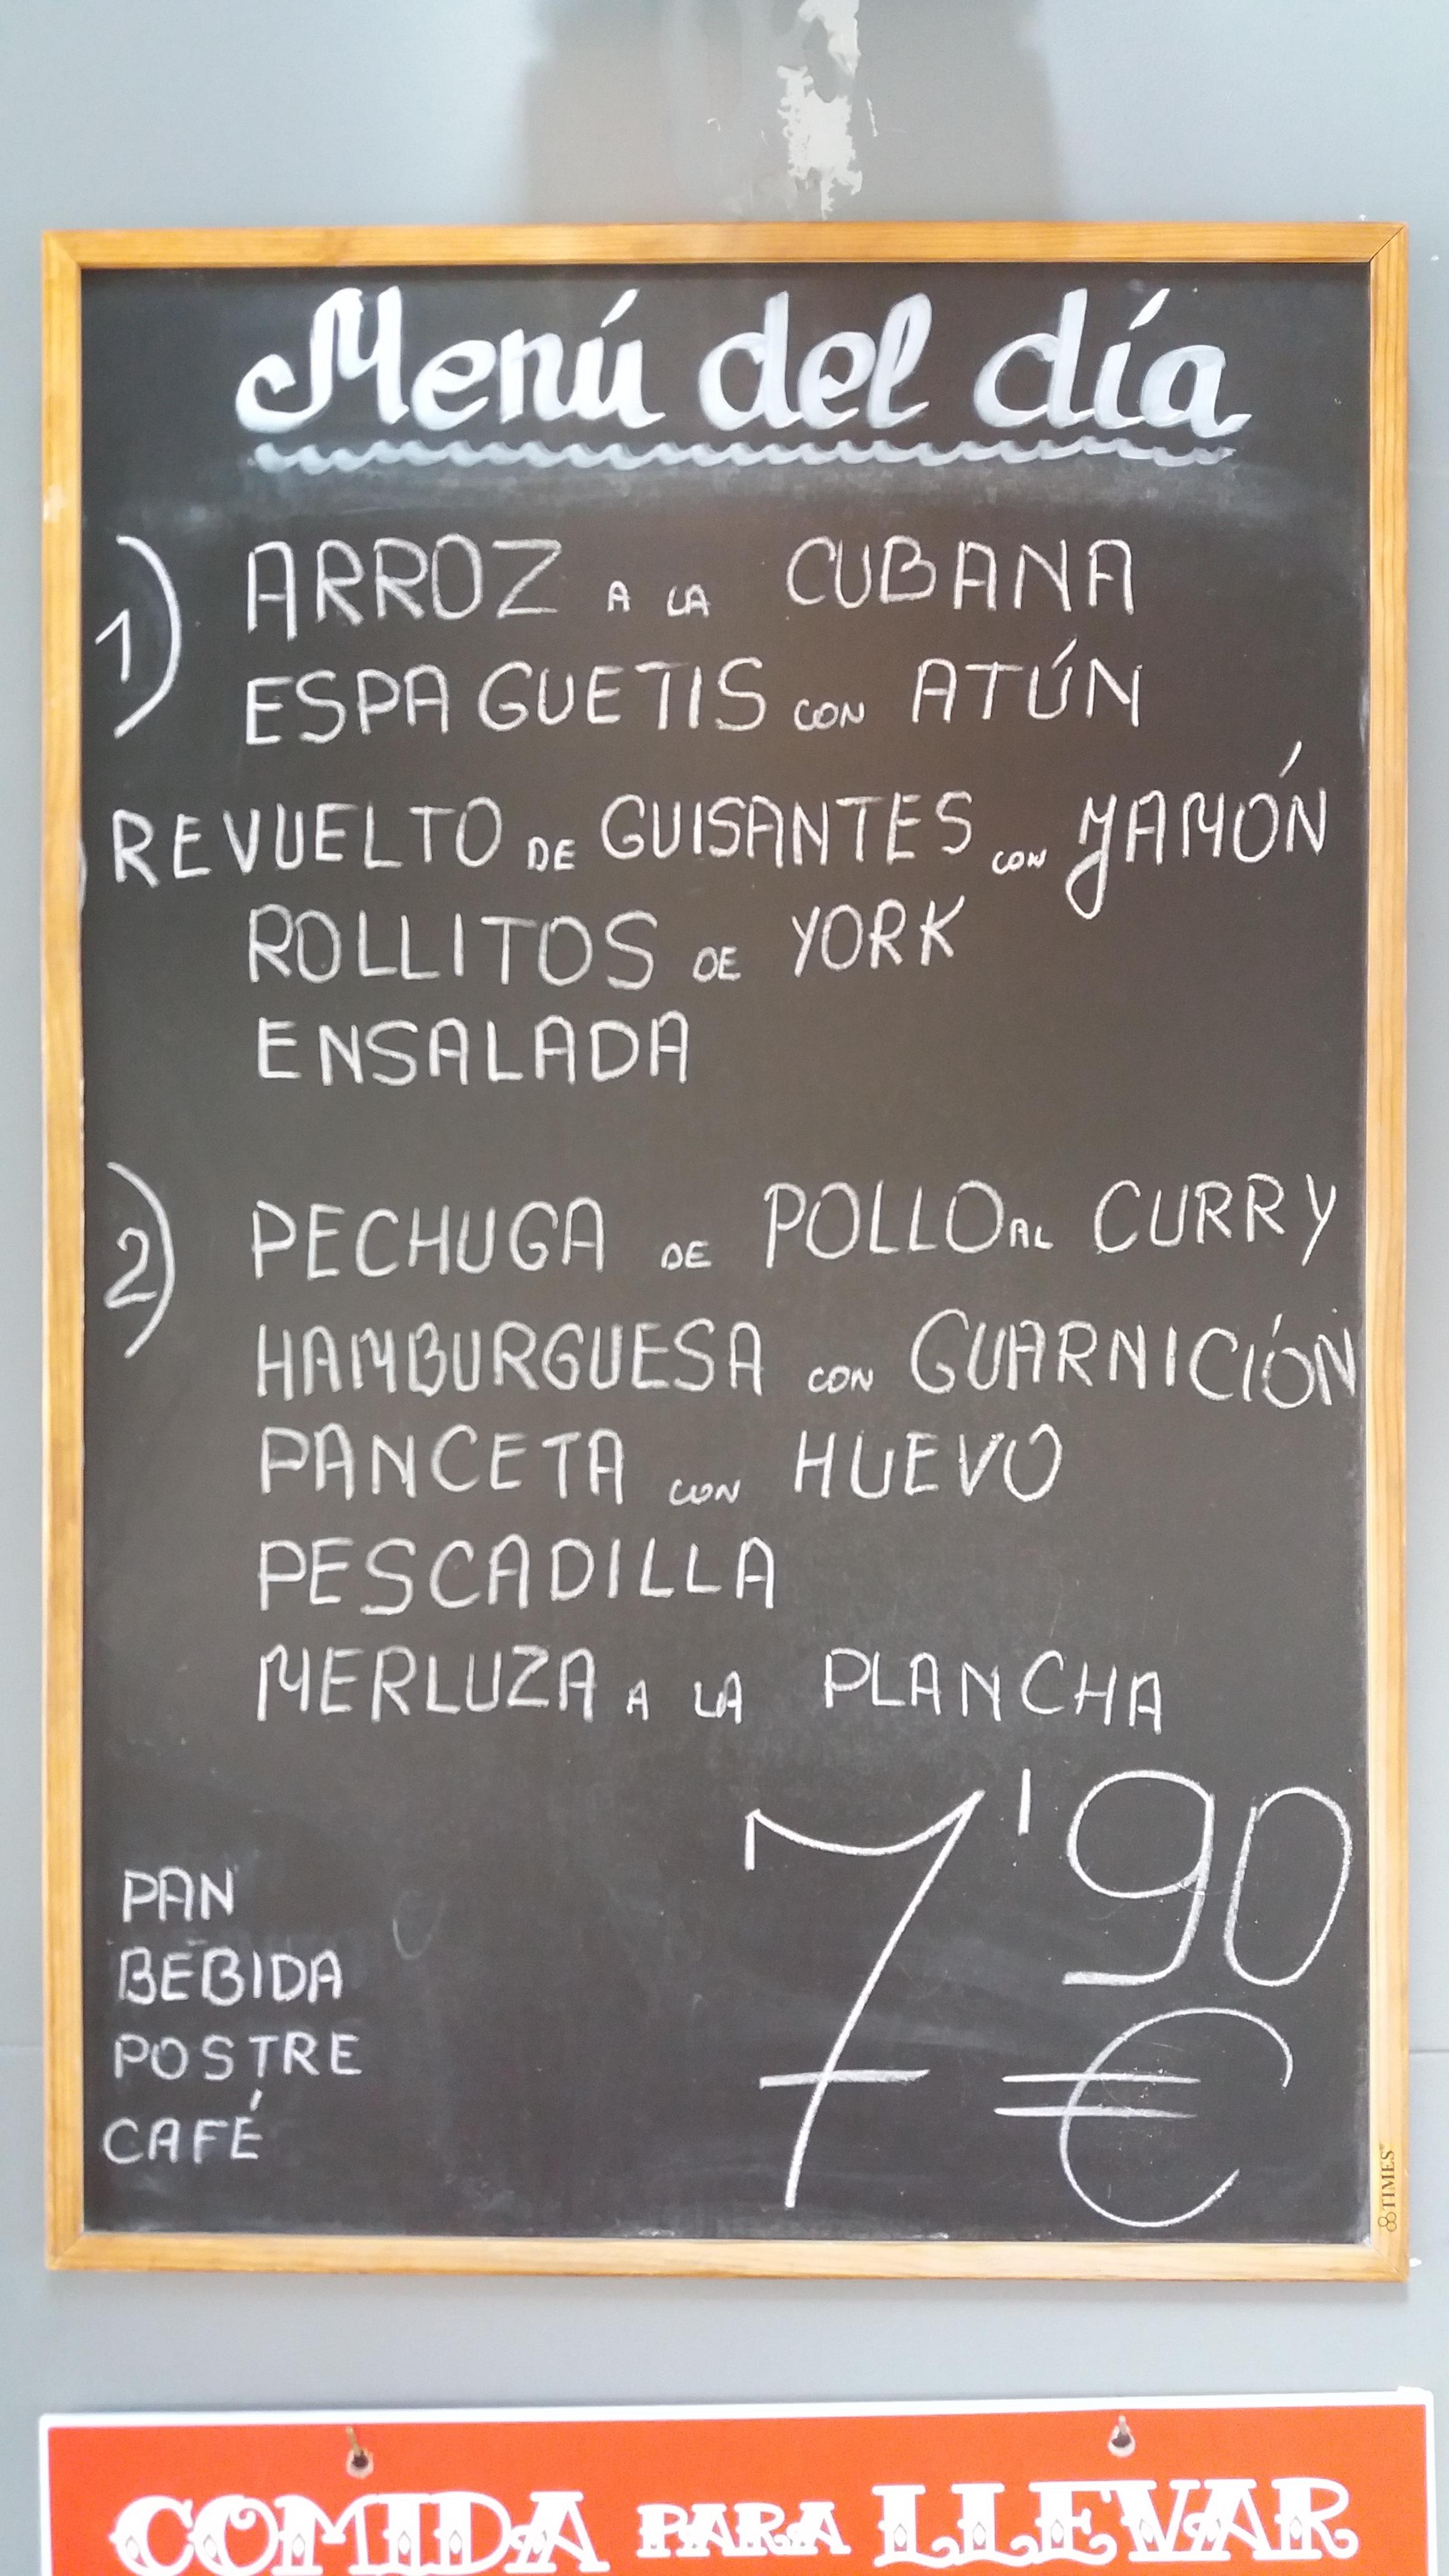 Menú del día
1) ARROZ A LA CUBANA
ESPAGUETIS CON ATÚN
REVUELTO DE GUISANTES CON JAMÓN
ROLLITOS DE YORK
ENSALADA
2) PECHUGA DE POLLO AL CURRY
HAMBURGUESA CON GUARNICIÓN
PANCETA CON HUEVO
PESCADILLA
MERLUZA A LA PLANCHA
7'90
€
PAN
BEBIDA
POSTRE
CAFÉ
TIMES
COMIDA PARA LLEVAR